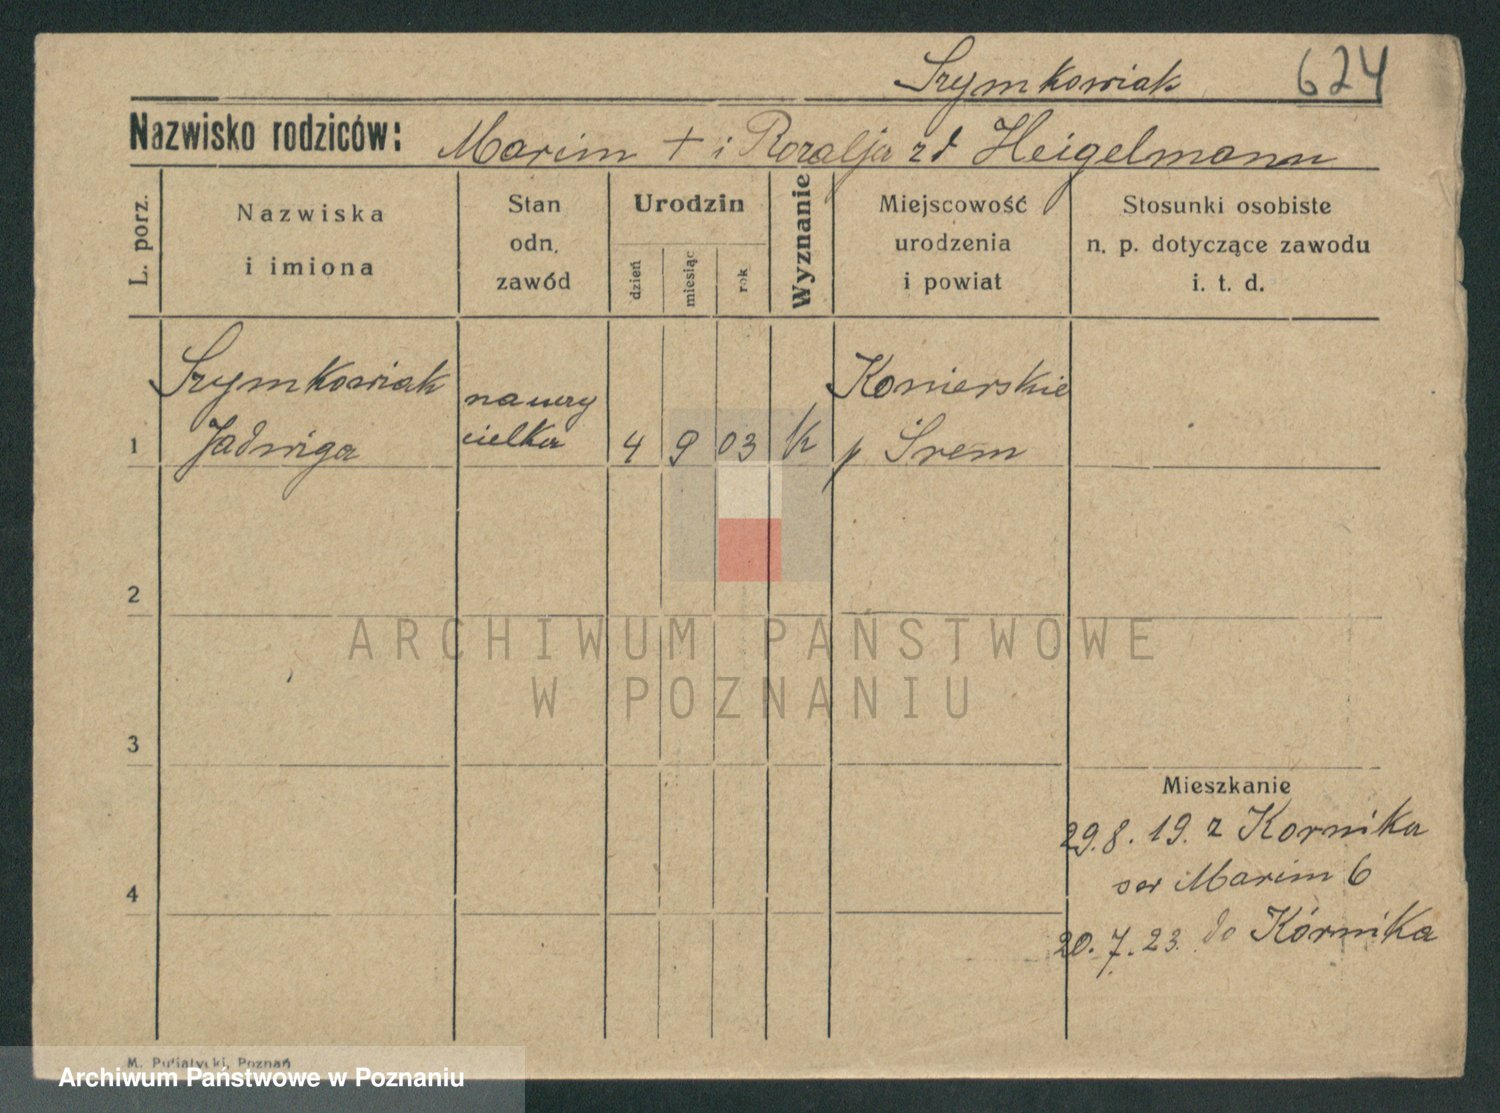 Szymkowiak 624
Nazwisko rodziców: Marcin + i Rozalja zd Heigelmann
L. porz.
Nazwiska
i imiona
Stan
odn.
zawód
Urodzin
dzień
miesiąc
rok
Wyznanie
Miejscowość
urodzenia
i powiat
Stosunki osobiste
n. p. dotyczące zawodu
i. t. d.
1 Szymkowiak
Jadwiga
nauczy
cielka
4 9 03 k
Konierskie
p Śrem
2
3
4
Mieszkanie
29.8.19. z Kornika
Marcin 6
20.7.23. do Kórnika
ARCHIWUM PAŃSTWOWE
W POZNANIU
Poznań
Archiwum Państwowe w Poznaniu